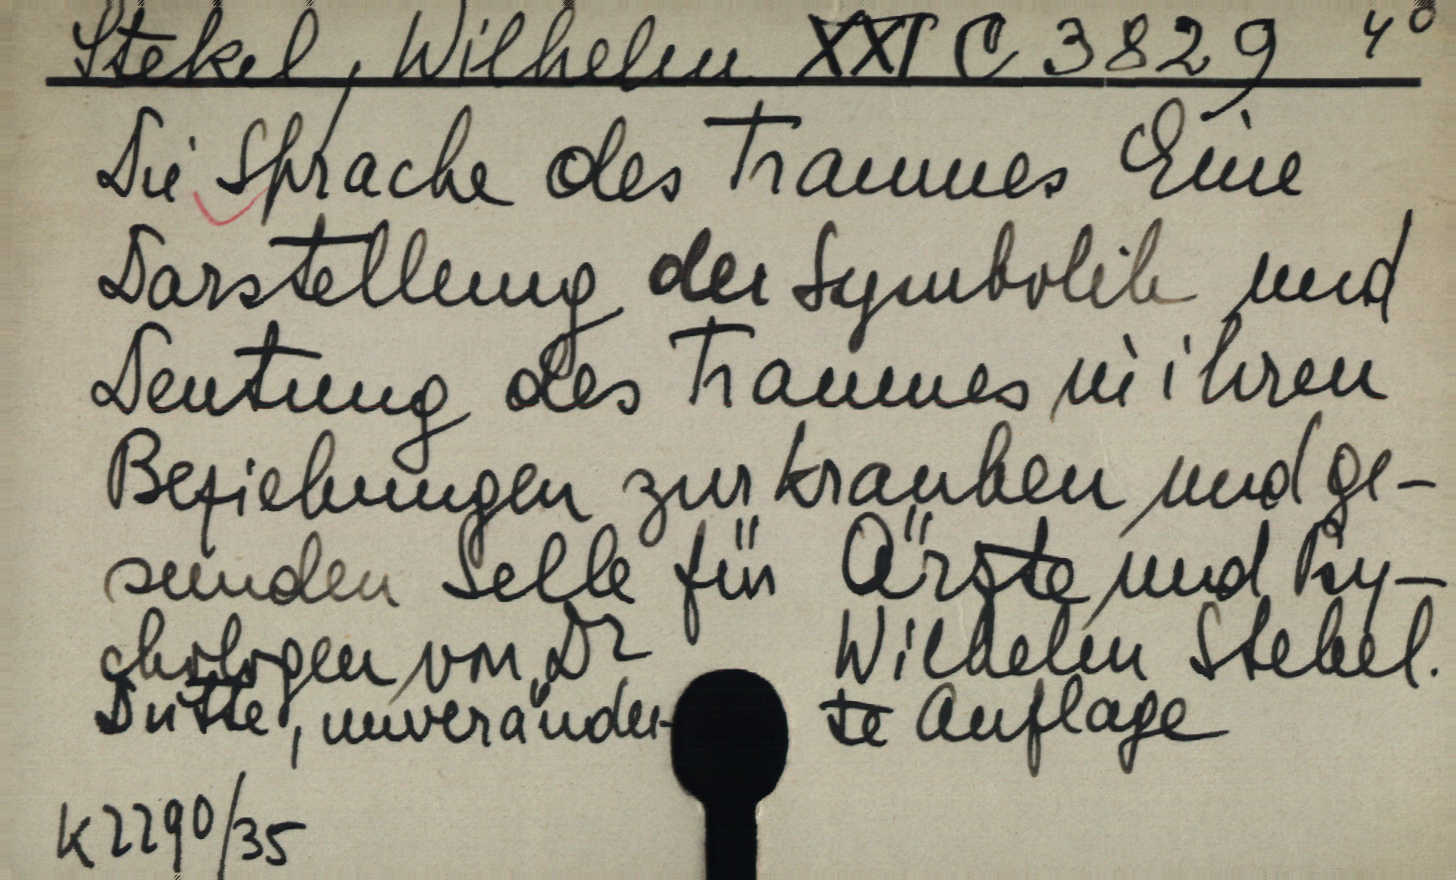 Stekel, Wilhelm XXI C 3829 4°
Die Sprache des Traumes Eine
Darstellung der Symbolik und
Deutung des Traumes in ihren
Beziehungen zur kranken und ge-
sunden Selle für Ärzte und Psy-
chologen von Dr Wilhelm Stekel.
Dritte, unveränderte Auflage
K2290/35